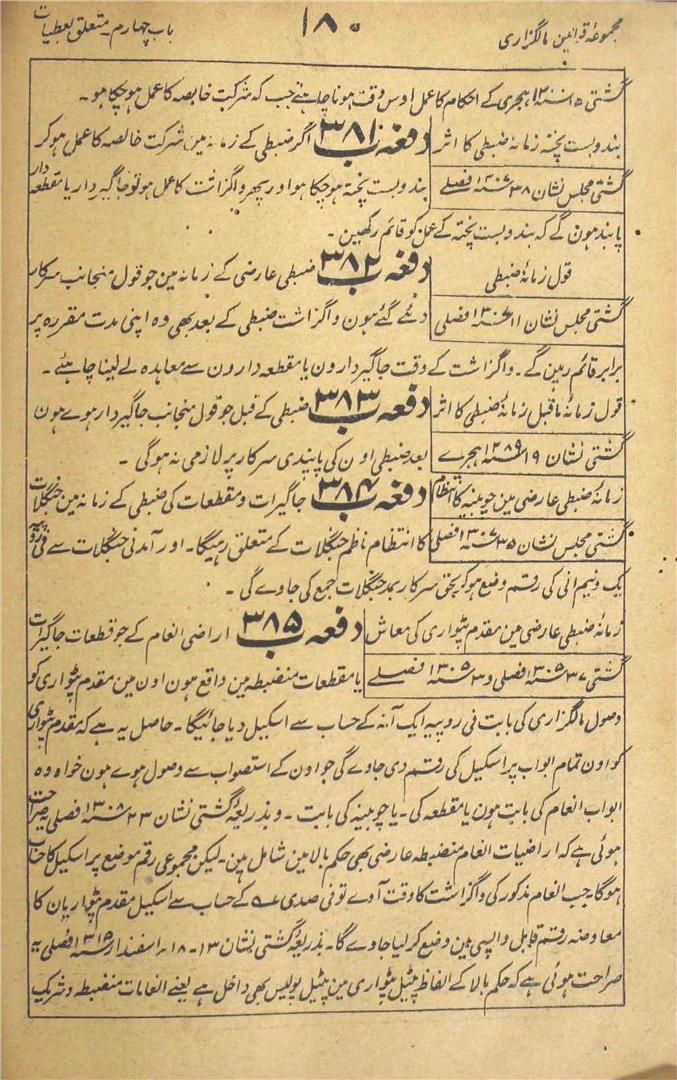 مجموعۂ قوانین مالگزاری
۱۸۰
باب چہارم۔ متعلق بعطیات
گشتی ۱۵ ۱۳۰۱ ہجری کے احکام کا عمل اوس وقت ہونا چاہئے جب کہ شرکت خالصہ کا عمل ہو چکا ہو۔
بندوبست پختہ زمانۂ ضبطی کا اثر
گشتی مجلس نشان ۳۸ ۱۳۰۷ فصلے
دفعہ ۳۸۱ ب اگر ضبطی کے زمانہ مین شرکت خالصہ کا عمل ہو کر
بندوبست پختہ ہو چکا ہو اور پھر واگزاشت کا عمل ہو تو جاگیردار یا مقطعہ دار
پابند ہون گے کہ بندوبست پختہ کے عمل کو قائم رکھین۔
قول زمانۂ ضبطی
گشتی مجلس نشان ۱۱ ۱۳۰۷ فصلی
دفعہ ۳۸۲ ب ضبطی عارضی کے زمانہ مین جو قول منجانب سرکار
دئے گئے ہون واگزاشت ضبطی کے بعد بھی وہ اپنی مدت مقررہ پر
برابر قائم رہین گے۔ واگزاشت کے وقت جاگیردارون یا مقطعہ دارون سے معاہدہ لے لینا چاہئے۔
قول زمانۂ ماقبل زمانۂ ضبطی کا اثر
گشتی نشان ۱۹ ۱۲۸۹ ہجرے
دفعہ ۳۸۳ ب ضبطی کے قبل جو قول منجانب جاگیردار ہوے ہون
بعد ضبطی اون کی پابندی سرکار پر لازمی نہ ہو گی۔
زمانۂ ضبطی عارضی مین چوبینہ کا انتظام
گشتی مجلس نشان ۳۵ ۱۳۰۷ فصلی
دفعہ ۳۸۴ ب جاگیرات و مقطعات کی ضبطی کے زمانہ مین جنگلات
کا انتظام ناظم جنگلات کے متعلق رہیگا۔ اور آمدنی جنگلات سے فی روپیہ
یک و نیم انی کی رقم وضع ہو کر بحق سرکار بمد جنگلات جمع کی جاوے گی۔
زمانۂ ضبطی عارضی مین مقدم پٹواری کی معاش
گشتی ۳۷ ۱۳۰۵ فصلی و ۳ ۱۳۰۵ فصلے
دفعہ ۳۸۵ ب اراضی انعام کے جو قطعات جاگیرات
یا مقطعات منضبطہ مین واقع ہون اون مین مقدم پٹواری کو
وصول مالگزاری کی بابت فی روپیہ ایک آنہ کے حساب سے اسکیل دیا جائیگا۔ حاصل یہ ہے کہ مقدم پٹواری
کو اون تمام ابواب پر اسکیل کی رقم دی جاوے گی جو اون کے استصواب سے وصول ہوے ہون خواہ وہ
ابواب انعام کی بابت ہون یا مقطعہ کی۔ یا چوبینہ کی بابت۔ و بذریعۂ گشتی نشان ۲۳ ۱۳۰۸ فصلی یہ صراحت
ہوئی ہے کہ اراضیات انعام منضبطہ عارضی بھی حکم بالا مین شامل ہین۔ لیکن مجموعی رقم موضع پر اسکیل کا حساب
ہو گا۔ جب انعام مذکور کی واگزاشت کا وقت آوے تو فی صدی کے حساب سے اسکیل مقدم پٹواریان کا
معاوضہ رقم قابل واپسی مین وضع کر لیا جاوے گا۔ بذریعۂ گشتی نشان ۱۳۔ ۱۸۔ اسفندار ۱۳۱۵ فصلی یہ
صراحت ہوئی ہے کہ حکم بالا کے الفاظ پٹیل پٹواری مین پٹیل پولیس بھی داخل ہے یعنے انعامات منضبطہ و شریک